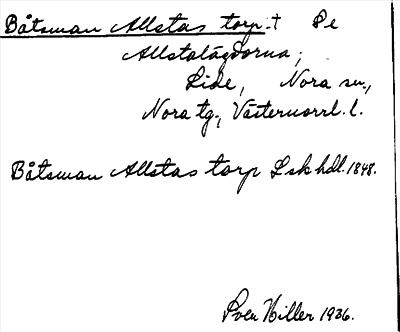 Båtsman Allstas torp † Se
Allstalägdorna;
Lide, Nora sn.,
Nora tg., Västernorrl. l.
Båtsman Allstas torp Lsk hdl. 1848.
Sven Hiller 1936.